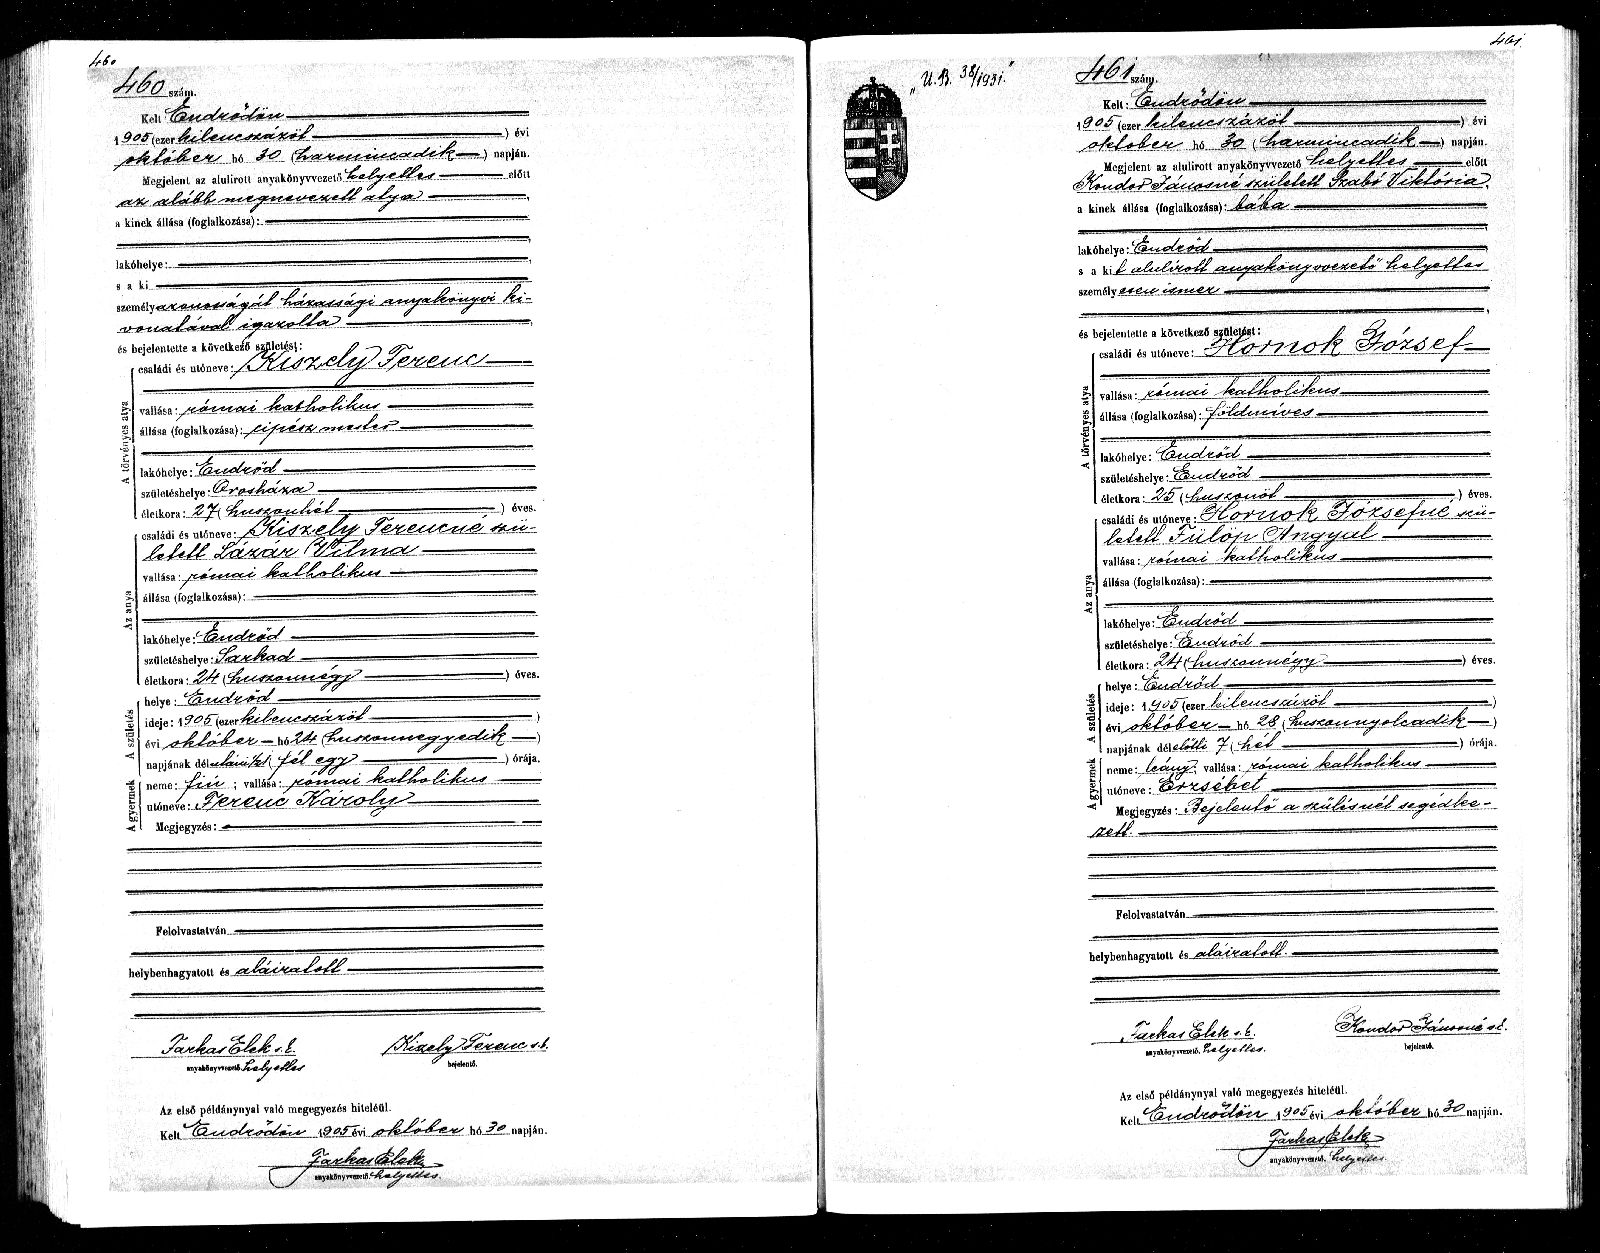 460
460 szám.
Kelt Endrődön
1905 (ezer kilencszázöt ) évi
október hó 30 (harmincadik ) napján.
Megjelent az alulirott anyakönyvvezető helyettes előtt
az alább megnevezett atya ,
a kinek állása (foglalkozása):
lakóhelye: ,
s a ki
személyazonosságát házassági anyakönyvi ki-
vonatával igazolta ,
és bejelentette a következő születést:
A törvényes atya
családi és utóneve: Kiszely Ferenc
vallása: római katholikus
állása (foglalkozása): cipész mester
lakóhelye: Endrőd
születéshelye: Orosháza
életkora: 27 (huszonhét ) éves.
Az anya
családi és utóneve: Kiszely Ferencné szü-
letett Lázár Vilma
vallása: római katholikus
állása (foglalkozása):
lakóhelye: Endrőd
születéshelye: Sarkad
életkora: 24 (huszonnégy ) éves.
A születés
helye: Endrőd
ideje: 1905 (ezer kilencszázöt )
évi október hó 24 (huszonnegyedik )
napjának délutáni ½1 (fél egy ) órája.
A gyermek
neme: fiú ; vallása: római katholikus
utóneve: Ferenc Károly
Megjegyzés:
Felolvastatván
helybenhagyatott és aláiratott
Farkas Elek s.k. Kiszely Ferenc s.k.
anyakönyvvezető. helyettes bejelentő.
Az első példánynyal való megegyezés hiteléül.
Kelt Endrődön 1905 évi október hó 30 napján.
Farkas Elek
anyakönyvvezető. helyettes.
461
„U.B. 38/1931."
461 szám.
Kelt: Endrődön
1905 (ezer kilencszázöt ) évi
október hó 30 (harmincadik ) napján.
Megjelent az alulirott anyakönyvvezető helyettes előtt
Kondor Jánosné született Szabó Viktória,
a kinek állása (foglalkozása): bába
lakóhelye: Endrőd ,
s a kit alulírott anyakönyvvezető helyettes
személyesen ismer
,
és bejelentette a következő születést:
A törvényes atya
családi és utóneve: Hornok József
vallása: római katholikus
állása (foglalkozása): földmíves
lakóhelye: Endrőd
születéshelye: Endrőd
életkora: 25 (huszonöt ) éves.
Az anya
családi és utóneve: Hornok Józsefné szü-
letett Fülöp Angyal
vallása: római katholikus
állása (foglalkozása):
lakóhelye: Endrőd
születéshelye: Endrőd
életkora: 24 (huszonnégy ) éves.
A születés
helye: Endrőd
ideje: 1905 (ezer kilencszázöt )
évi október hó 28 (huszonnyolcadik )
napjának délelőtti 7 (hét ) órája.
A gyermek
neme: leány; vallása: római katholikus
utóneve: Erzsébet
Megjegyzés: Bejelentő a szülésnél segédke-
zett.
Felolvastatván
helybenhagyatott és aláiratott.
Farkas Elek s.k. Kondor Jánosné s.k.
anyakönyvvezető. helyettes. bejelentő.
Az első példánynyal való megegyezés hiteléül.
Kelt Endrődön 1905 évi október hó 30 napján.
Farkas Elek
anyakönyvvezető. helyettes.